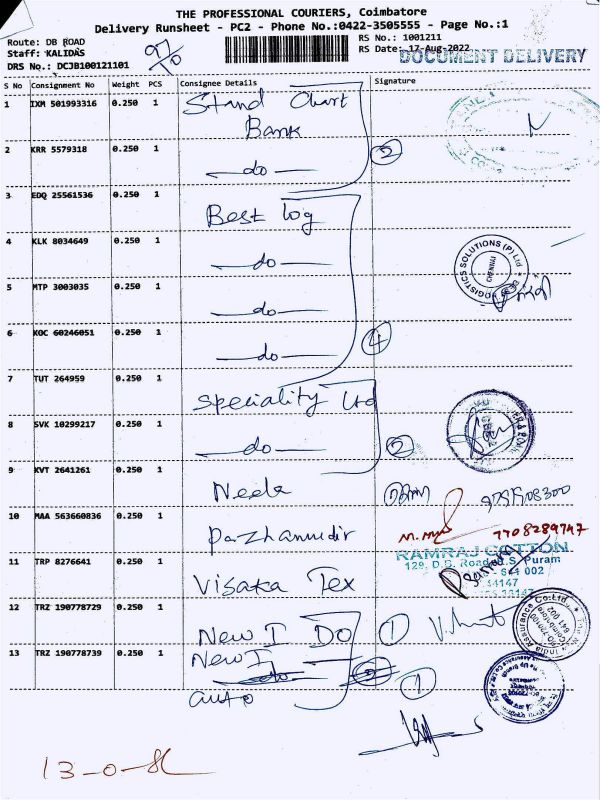 THE PROFESSIONAL COURIERS, Coimbatore
Delivery Runsheet - PC2 - Phone No.:0422-3505555 - Page No.:1
Route: DB ROAD
Staff: KALIDAS
DRS No.: DCJB100121101
97/10
RS No.: 1001211
RS Date: 17-Aug-2022
DOCUMENT DELIVERY
S No Consignment No Weight PCS Consignee Details Signature
1 IXM 501993316 0.250 1 Stand Chart Bank
2 KRR 5579318 0.250 1 —do— 2
3 EDQ 25561536 0.250 1 Best log
4 KLK 8034649 0.250 1 —do—
LOGISTICS SOLUTIONS (P) Ltd
CHENNAI
5 MTP 3003035 0.250 1 —do—
6 KOC 60246051 0.250 1 —do— 4
7 TUT 264959 0.250 1 Speciality Ltd
8 SVK 10299217 0.250 1 —do— 2
9 KVT 2641261 0.250 1 Neela
10 MAA 563660836 0.250 1 Pazhamudir
7708289747
RAMRAJ COTTON
129, D.B. Road, R.S. Puram
11 TRP 8276641 0.250 1 Visaka Tex
12 TRZ 190778729 0.250 1 New I Do 1
New India Assurance Co. Ltd.
13 TRZ 190778739 0.250 1 New I
auto 1